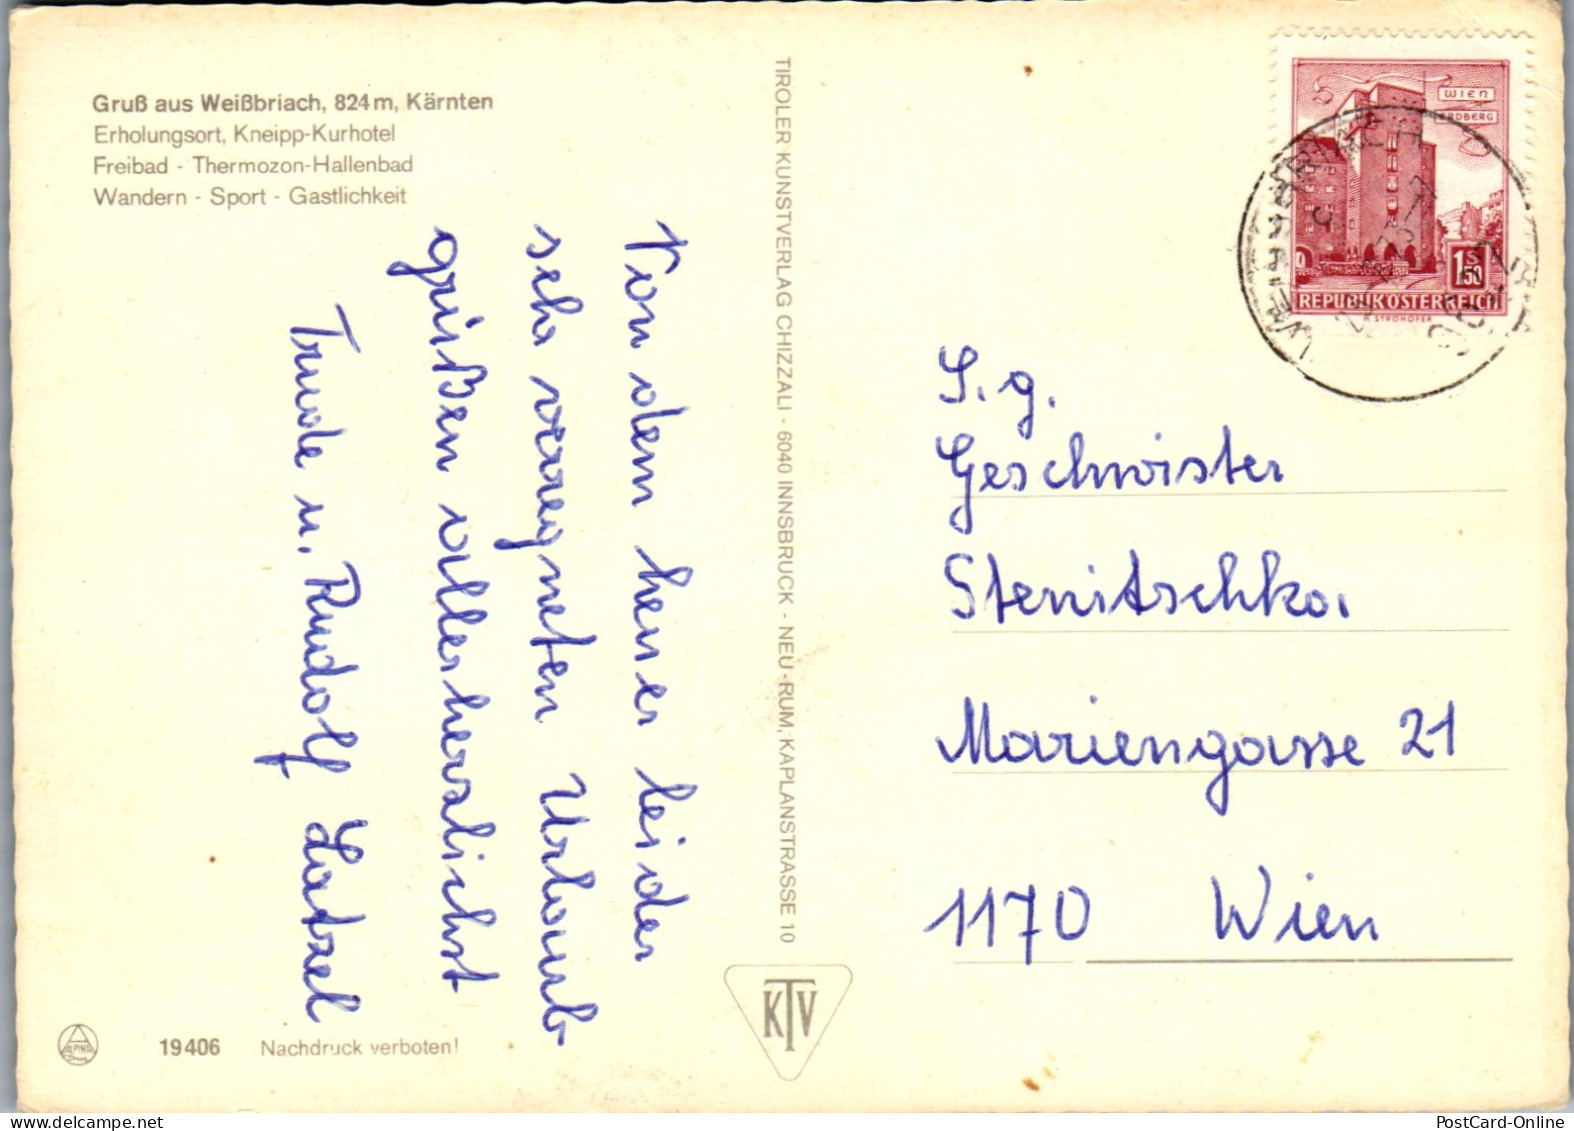 Gruß aus Weißbriach, 824 m, Kärnten
Erholungsort, Kneipp-Kurhotel
Freibad - Thermozon-Hallenbad
Wandern - Sport - Gastlichkeit
Von dem heuer leider
sehr verregneten Urlaub
grüßen allerherzlichst
Trude u. Rudolf Latzel
19406 Nachdruck verboten!
TIROLER KUNSTVERLAG CHIZZALI - 6040 INNSBRUCK - NEU-RUM, KAPLANSTRASSE 10
KTV
WIEN
ERDBERG
1.50
S
REPUBLIK ÖSTERREICH
STROHOFER
WEISSBRIACH
S. g.
Geschwister
Stenitschka
Mariengasse 21
1170 Wien
PostCard-Online
www.delcampe.net